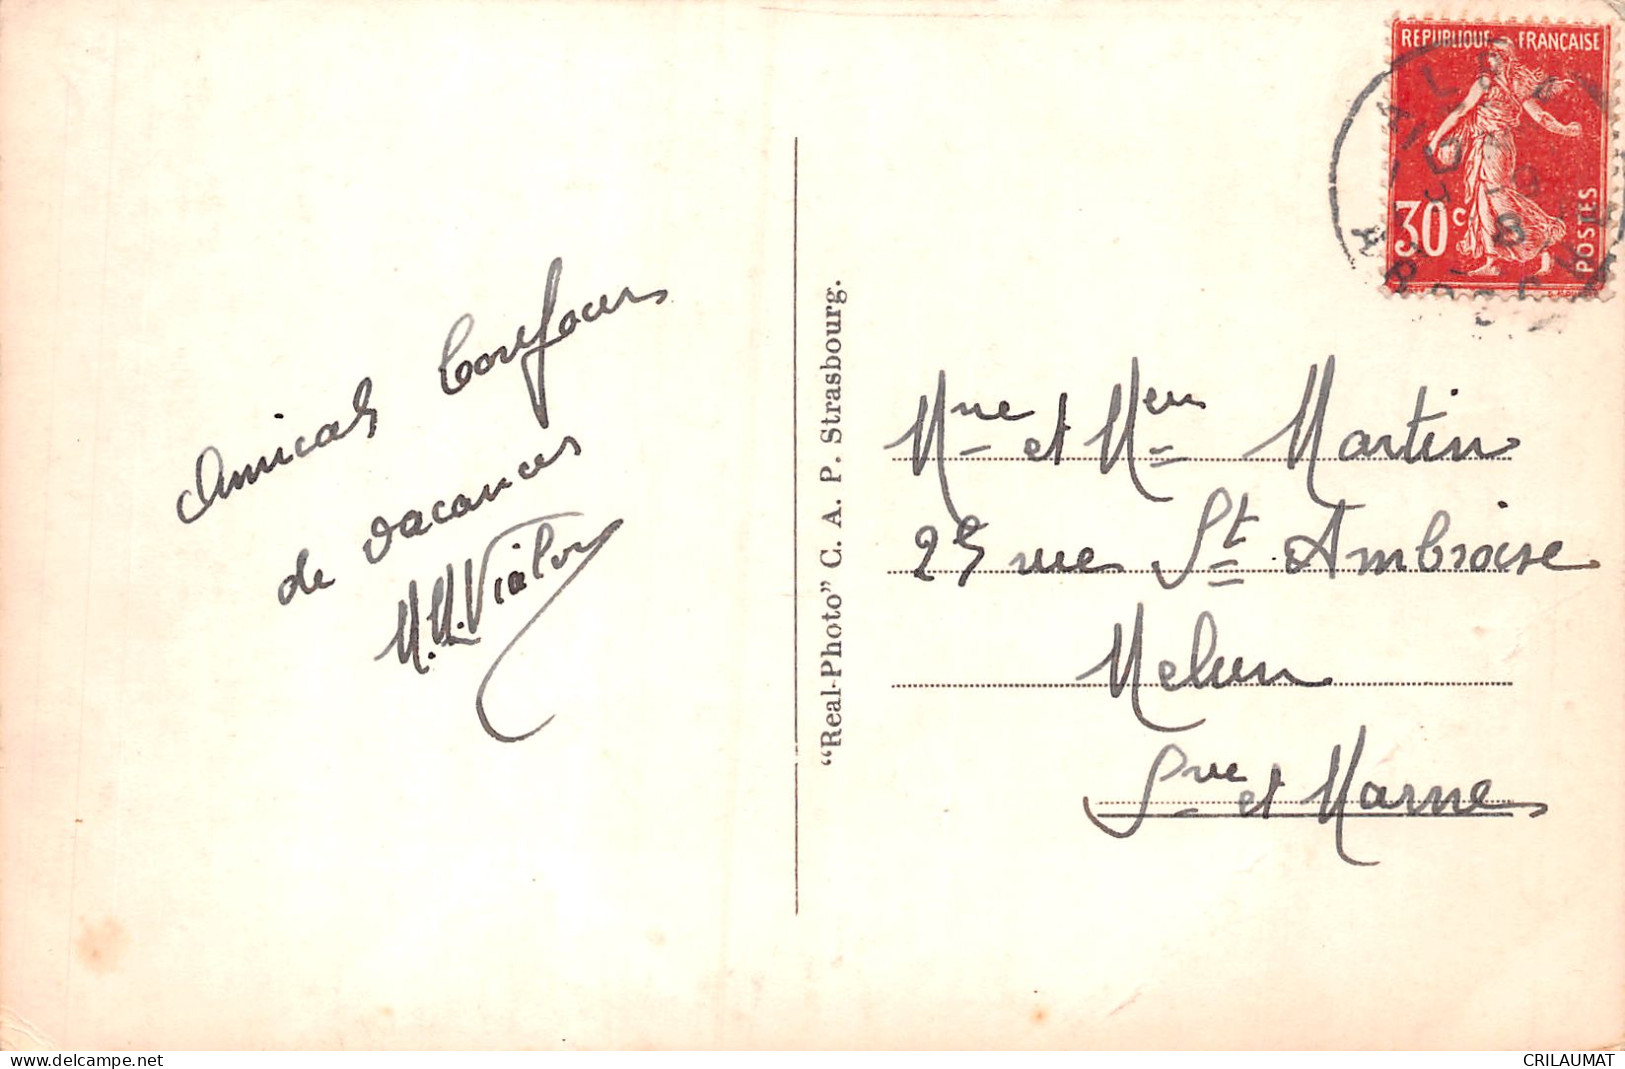 Amicals
de vacances
M. M. Vialou
"Real-Photo" C. A. P. Strasbourg.
REPUBLIQUE FRANÇAISE
30c
POSTES
Mme et Meur Martin
25 rue St Ambroise
Melun
Sne et Marne
delcampe.net
CRILAUMAT